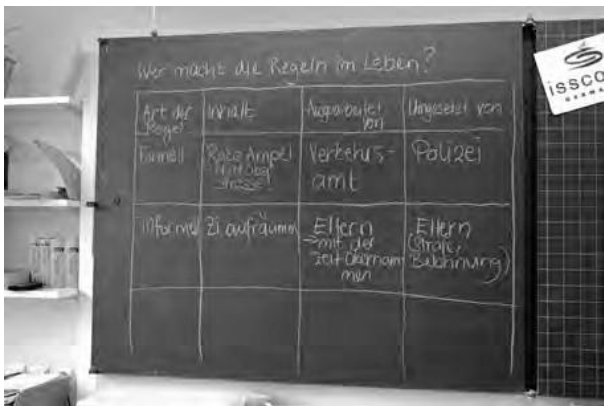 Wer macht die Regeln im Leben?
Art der Regel
Inhalt
Ausgearbeitet von
Umgesetzt von
Formell
Rote Ampel
Verkehrs-
amt
Polizei
informell
Zi aufräumen
Eltern
mit der
Zeit übernom
men
Eltern
(Strafe,
Belohnung)
issco